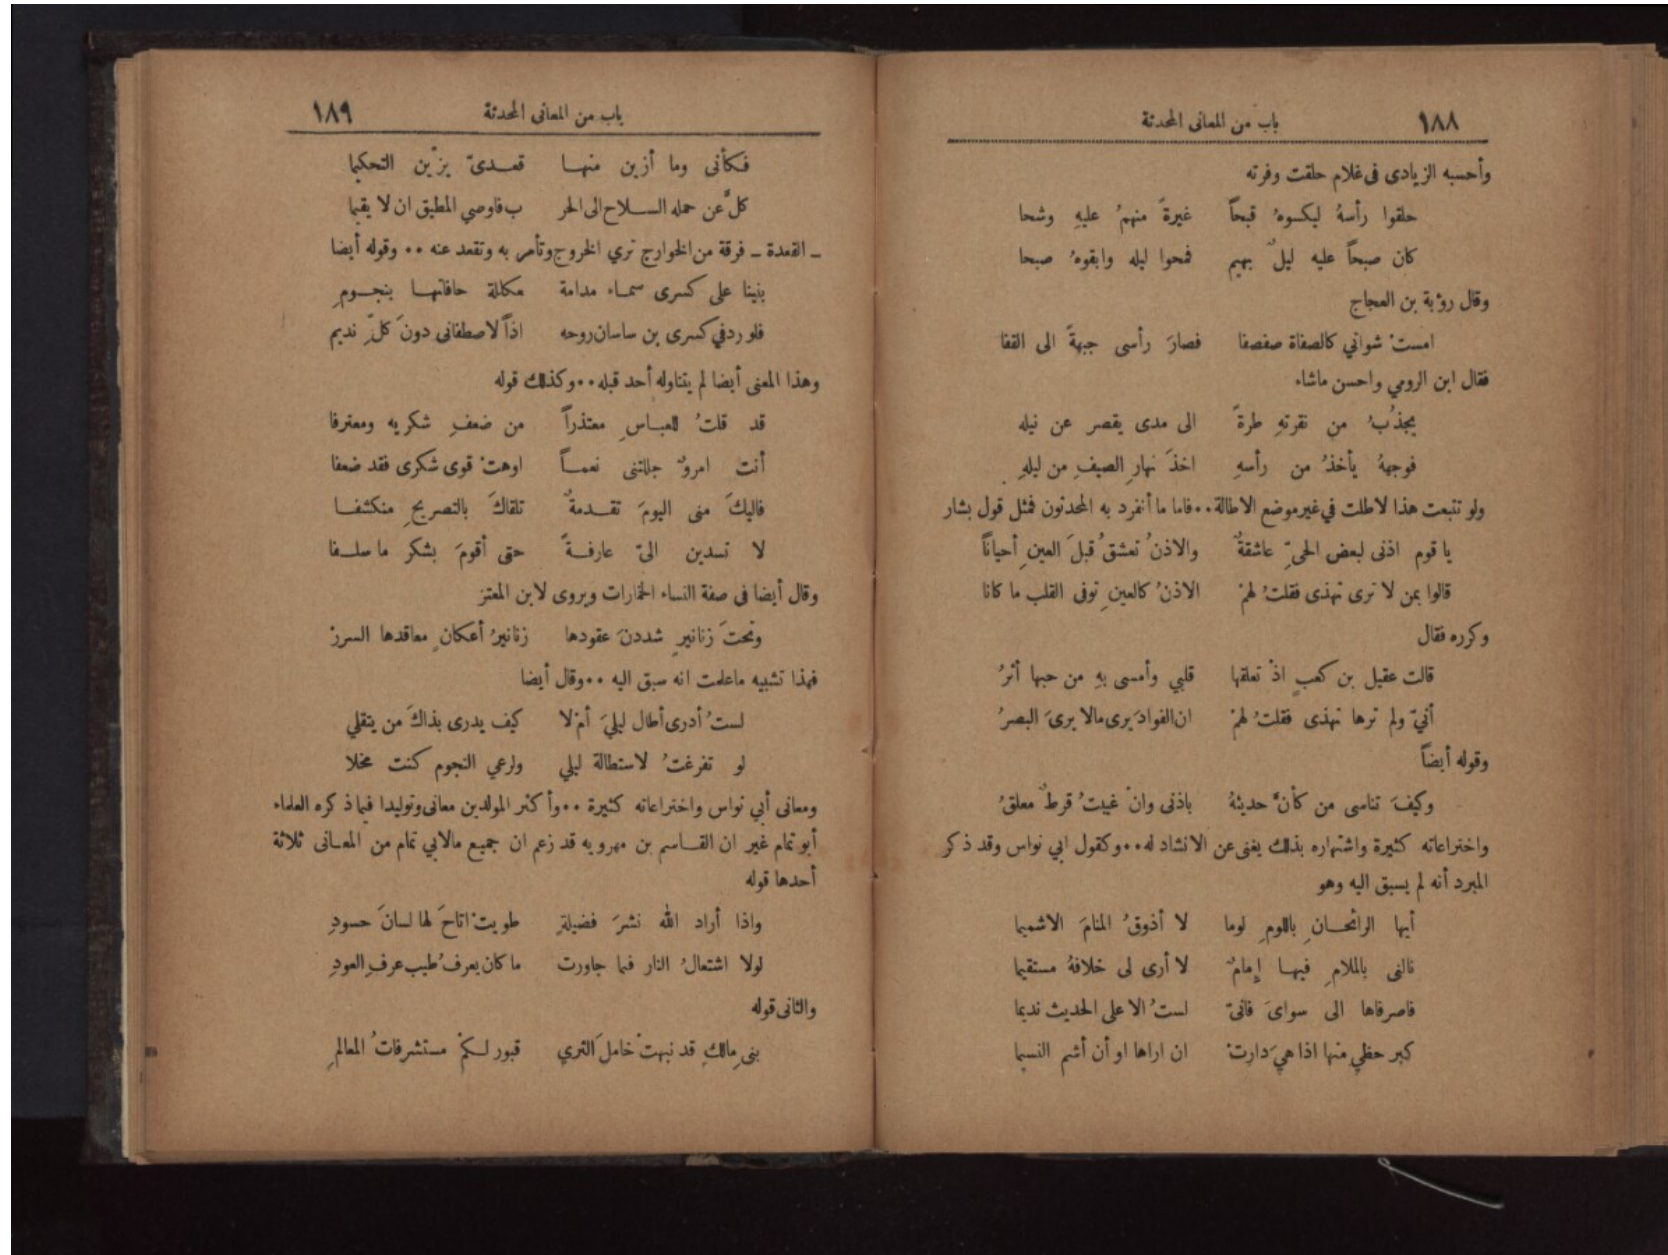 ١٨٨ باب من المعانى المحدثة
وأحسبه الزيادى فى غلام حلقت وفرته
حلقوا رأسهُ ليكسوهُ قبحاً غيرةً منهمُ عليهِ وشحا
كان صبحاً عليه ليلٌ بهيم فمحوا ليله وابقوهُ صبحا
وقال رؤبة بن العجاج
امستْ شواني كالصفاة صفصفا فصارَ رأسى جبهةً الى القفا
فقال ابن الرومي واحسن ماشاء
يجذبُ من نقرتهِ طرةً الى مدى يقصر عن نيله
فوجههُ يأخذُ من رأسهِ اخذَ نهارِ الصيفِ من ليلهِ
ولو تتبعت هذا لاطلت في غير موضع الاطالة٠٠فاما ما أنفرد به المحدثون فمثل قول بشار
يا قوم اذنى لبعض الحىّ عاشقةٌ والاذنُ تعشقُ قبلَ العينِ أحياناً
قالوا بمن لا ترى تهذى فقلتُ لهمْ الاذنُ كالعينِ توفى القلب ما كانا
وكرره فقال
قالت عقيل بن كعبٍ اذْ تعلقها قلبي وأمسى بهِ من حبها أثرُ
أنيّ ولم ترها تهذى فقلتُ لهمْ ان الفوادَ يرى مالا يرىَ البصرُ
وقوله أيضاً
وكيفَ تناسى من كأنَّ حديثهُ باذنى وانْ غيبتُ قرطٌ معلقُ
واختراعاته كثيرة واشتهاره بذلك يغنى عن الانشاد له٠٠وكقول ابي نواس وقد ذكر
المبرد أنه لم يسبق اليه وهو
أيها الرائحــانِ باللومِ لوما لا أذوقُ المنامَ الاشميما
نالنى بالملامِ فيهـا إمامٌ لا أرى لى خلافهُ مستقيما
فاصرفاها الى سوايَ فانىّ لستُ الا على الحديث نديما
كبر حظي منها اذا هيَ دارتْ ان اراها او أن أشم النسيما
باب من المعانى المحدثة ١٨٩
فـكأنى وما أزين منهـا قعـدىّ يزّين التحكيما
كلَّ عن حمله السـلاح الى الحر ب فاوصي المطيق ان لا يقيما
ـ القعدة ـ فرقة من الخوارج تري الخروج وتأمر به وتقعد عنه ٠٠ وقوله أيضا
بنينا على كسرى سمـاء مدامة مكللة حافاتهـا بنجـومِ
فلو ردفي كسرى بن ساسان روحه اذاً لاصطفانى دونَ كلِّ نديم
وهذا المعنى أيضا لم يتناوله أحد قبله٠٠وكذلك قوله
قد قلتُ للعبـاسِ معتذراً من ضعفِ شكريه ومعترفا
أنت امروٌ جللتنى نعمـاً اوهتْ قوى شكرى فقد ضعفا
فاليكَ منى اليومَ تقـدمةٌ تلقاكَ بالتصريحِ منكشفـا
لا تسدين الىّ عارفـةً حتى أقومَ بشكر ما سلـفا
وقال أيضا فى صفة النساء الخمارات ويروى لابن المعتز
وتحتَ زنانيرٍ شددنَ عقودها زنانيرُ أعكانٍ معاقدها السررْ
فهذا تشبيه ماعلمت انه سبق اليه ٠٠وقال أيضا
لستُ أدرى أطال ليليَ أمْ لا كيف يدرى بذاكَ من يتقلي
لو تفرغتُ لاستطالة ليلي ولرعي النجوم كنت مخلا
ومعانى أبي نواس واختراعاته كثيرة ٠٠وأكثر المولدين معانى وتوليدا فيما ذكره العلماء
أبو تمام غير ان القـاسم بن مهرويه قد زعم ان جميع مالابي تمام من المعـانى ثلاثة
أحدها قوله
واذا أراد الله نشرَ فضيلةٍ طويتْ اتاحَ لها لسانَ حسودِ
لولا اشتعالُ النار فيما جاورت ما كان يعرفُ طيب عرفِ العودِ
والثانى قوله
بنى مالكٍ قد نبهتْ خاملَ الثري قبور لـكمْ مستشرفاتُ المعالمِ